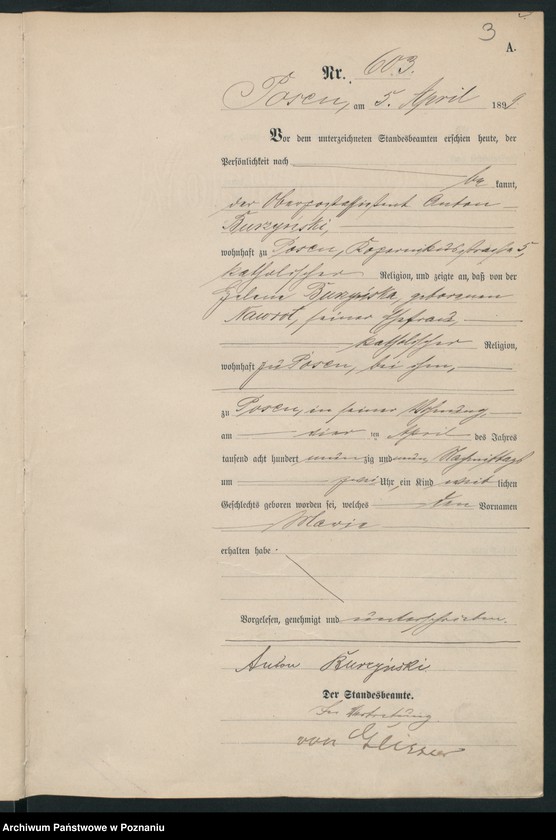 3
A.
Nr. 603.
Posen, am 5. April 1899.
Vor dem unterzeichneten Standesbeamten erschien heute, der
Persönlichkeit nach
be kannt,
der Oberpostassistent Anton
Burzynski,
wohnhaft zu Posen, Kopernikusstrasse 5,
katholischer Religion, und zeigte an, daß von der
Burzyńska, geborenen
Nawrot, seiner Ehefrau,
katholischer Religion,
wohnhaft zu Posen, bei ihm,
zu Posen, in seiner Wohnung,
am vier ten April des Jahres
tausend acht hundert neun zig und neun, Nachmittags
um zwei Uhr, ein Kind weib lichen
Geschlechts geboren worden sei, welches den Vornamen
Marie
erhalten habe.
Vorgelesen, genehmigt und unterschrieben.
Anton Burzyński
Der Standesbeamte.
In Vertretung
von
Archiwum Państwowe w Poznaniu